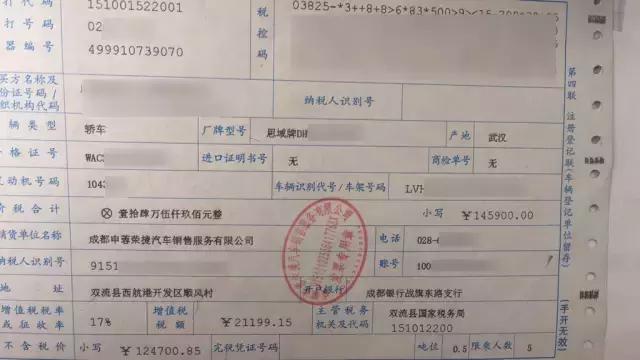 打代码 151001522001 税
03825-*3++8+8>6*83*500>9><15-700*70
打号码 02 控
器编号 499910739070 码
买方名称及
份证号码/
组织机构代码 纳税人识别号
辆类型 轿车 厂牌型号 思域牌DH 产地 武汉
格证号 WAC 进口证明书号 无 商检单号 无
动机号码 104 车辆识别代号/车架号码 LVH
价税合计 ⊗壹拾肆万伍仟玖佰元整 小写 ￥145900.00
销货单位名称 成都申蓉荣捷汽车销售服务有限公司 电话 028-
纳税人识别号 9151 账号 100
地址 双流县西航港开发区顺风村 开户银行 成都银行战旗东路支行
增值税税率或征收率 17% 增值税税额 ￥21199.15 主管税务机关及代码 双流县国家税务局 151012200
不含税价 小写 ￥124700.85 完税凭证号码 吨位 0.5 限乘人数 5
第四联 注册登记联(车辆登记单位留存)
(手开无效)
发票专用章